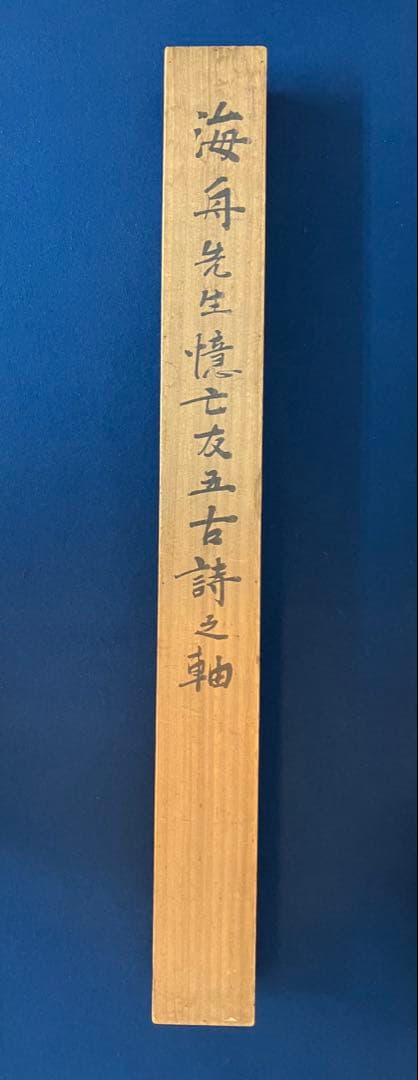 海舟先生憶亡友五古詩之軸